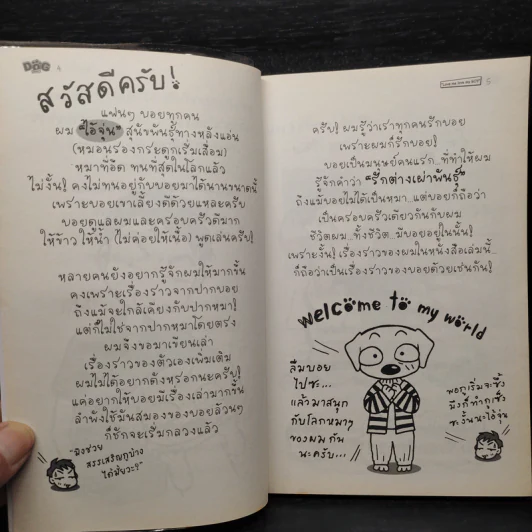 DOG
4
สวัสดีครับ!
แฟนๆ บอยทุกคน
ผม "ไอ้จุ่น" สุนัขพันธุ์ทางหลังแอ่น
(หมอนรองกระดูกเริ่มเสื่อม)
หมาที่อึด ทนที่สุดในโลกแล้ว
ไม่งั้น! คงไม่ทนอยู่กับบอยมาได้นานขนาดนี้
เพราะบอยเขาเลี้ยงดีด้วยแหละครับ
บอยดูแลผมและครอบครัวดีมาก
ให้ข้าว ให้น้ำ (ไม่ค่อยให้เนื้อ) พูดเล่นครับ!
หลายคนยังอยากรู้จักผมให้มากขึ้น
คงเพราะเรื่องราวจากปากบอย
ถึงแม้จะใกล้เคียงกับปากหมา!
แต่ก็ไม่ใช่จากปากหมาโดยตรง
ผมจึงขอมาเขียนเล่า
เรื่องราวของตัวเองเพิ่มเติม
ผมไม่ได้อยากดังหรอกนะครับ!
แค่อยากให้บอยมีเรื่องเล่ามากขึ้น
ลำพังใช้มันสมองของบอยล้วนๆ
ก็ชักจะเริ่มกลวงแล้ว
"มึงช่วย
สรรเสริญกูบ้าง
ได้มั้ยวะ?"
5
ครับ! ผมรู้ว่าเราทุกคนรักบอย
เพราะผมก็รักบอย!
บอยเป็นมนุษย์คนแรก...ที่ทำให้ผม
รู้จักคำว่า "รักต่างเผ่าพันธุ์"
ถึงแม้บอยไม่ได้เป็นหมา...แต่บอยก็ถือว่า
เป็นครอบครัวเดียวกันกับผม
ชีวิตผม...ทั้งชีวิต...มีบอยอยู่ในนั้น!
เพราะงั้น! เรื่องราวของผมในหนังสือเล่มนี้...
ก็ถือว่าเป็นเรื่องราวของบอยด้วยเช่นกัน!
welcome to my world
ลืมบอย
ไปซะ...
แล้วมาสนุก
กับโลกหมาๆ
ของผมกัน
นะครับ...
พอกูเริ่มจะซึ้ง
มึงก็ทำกูซึ้ง
ซะงั้นนะไอ้จุ่น